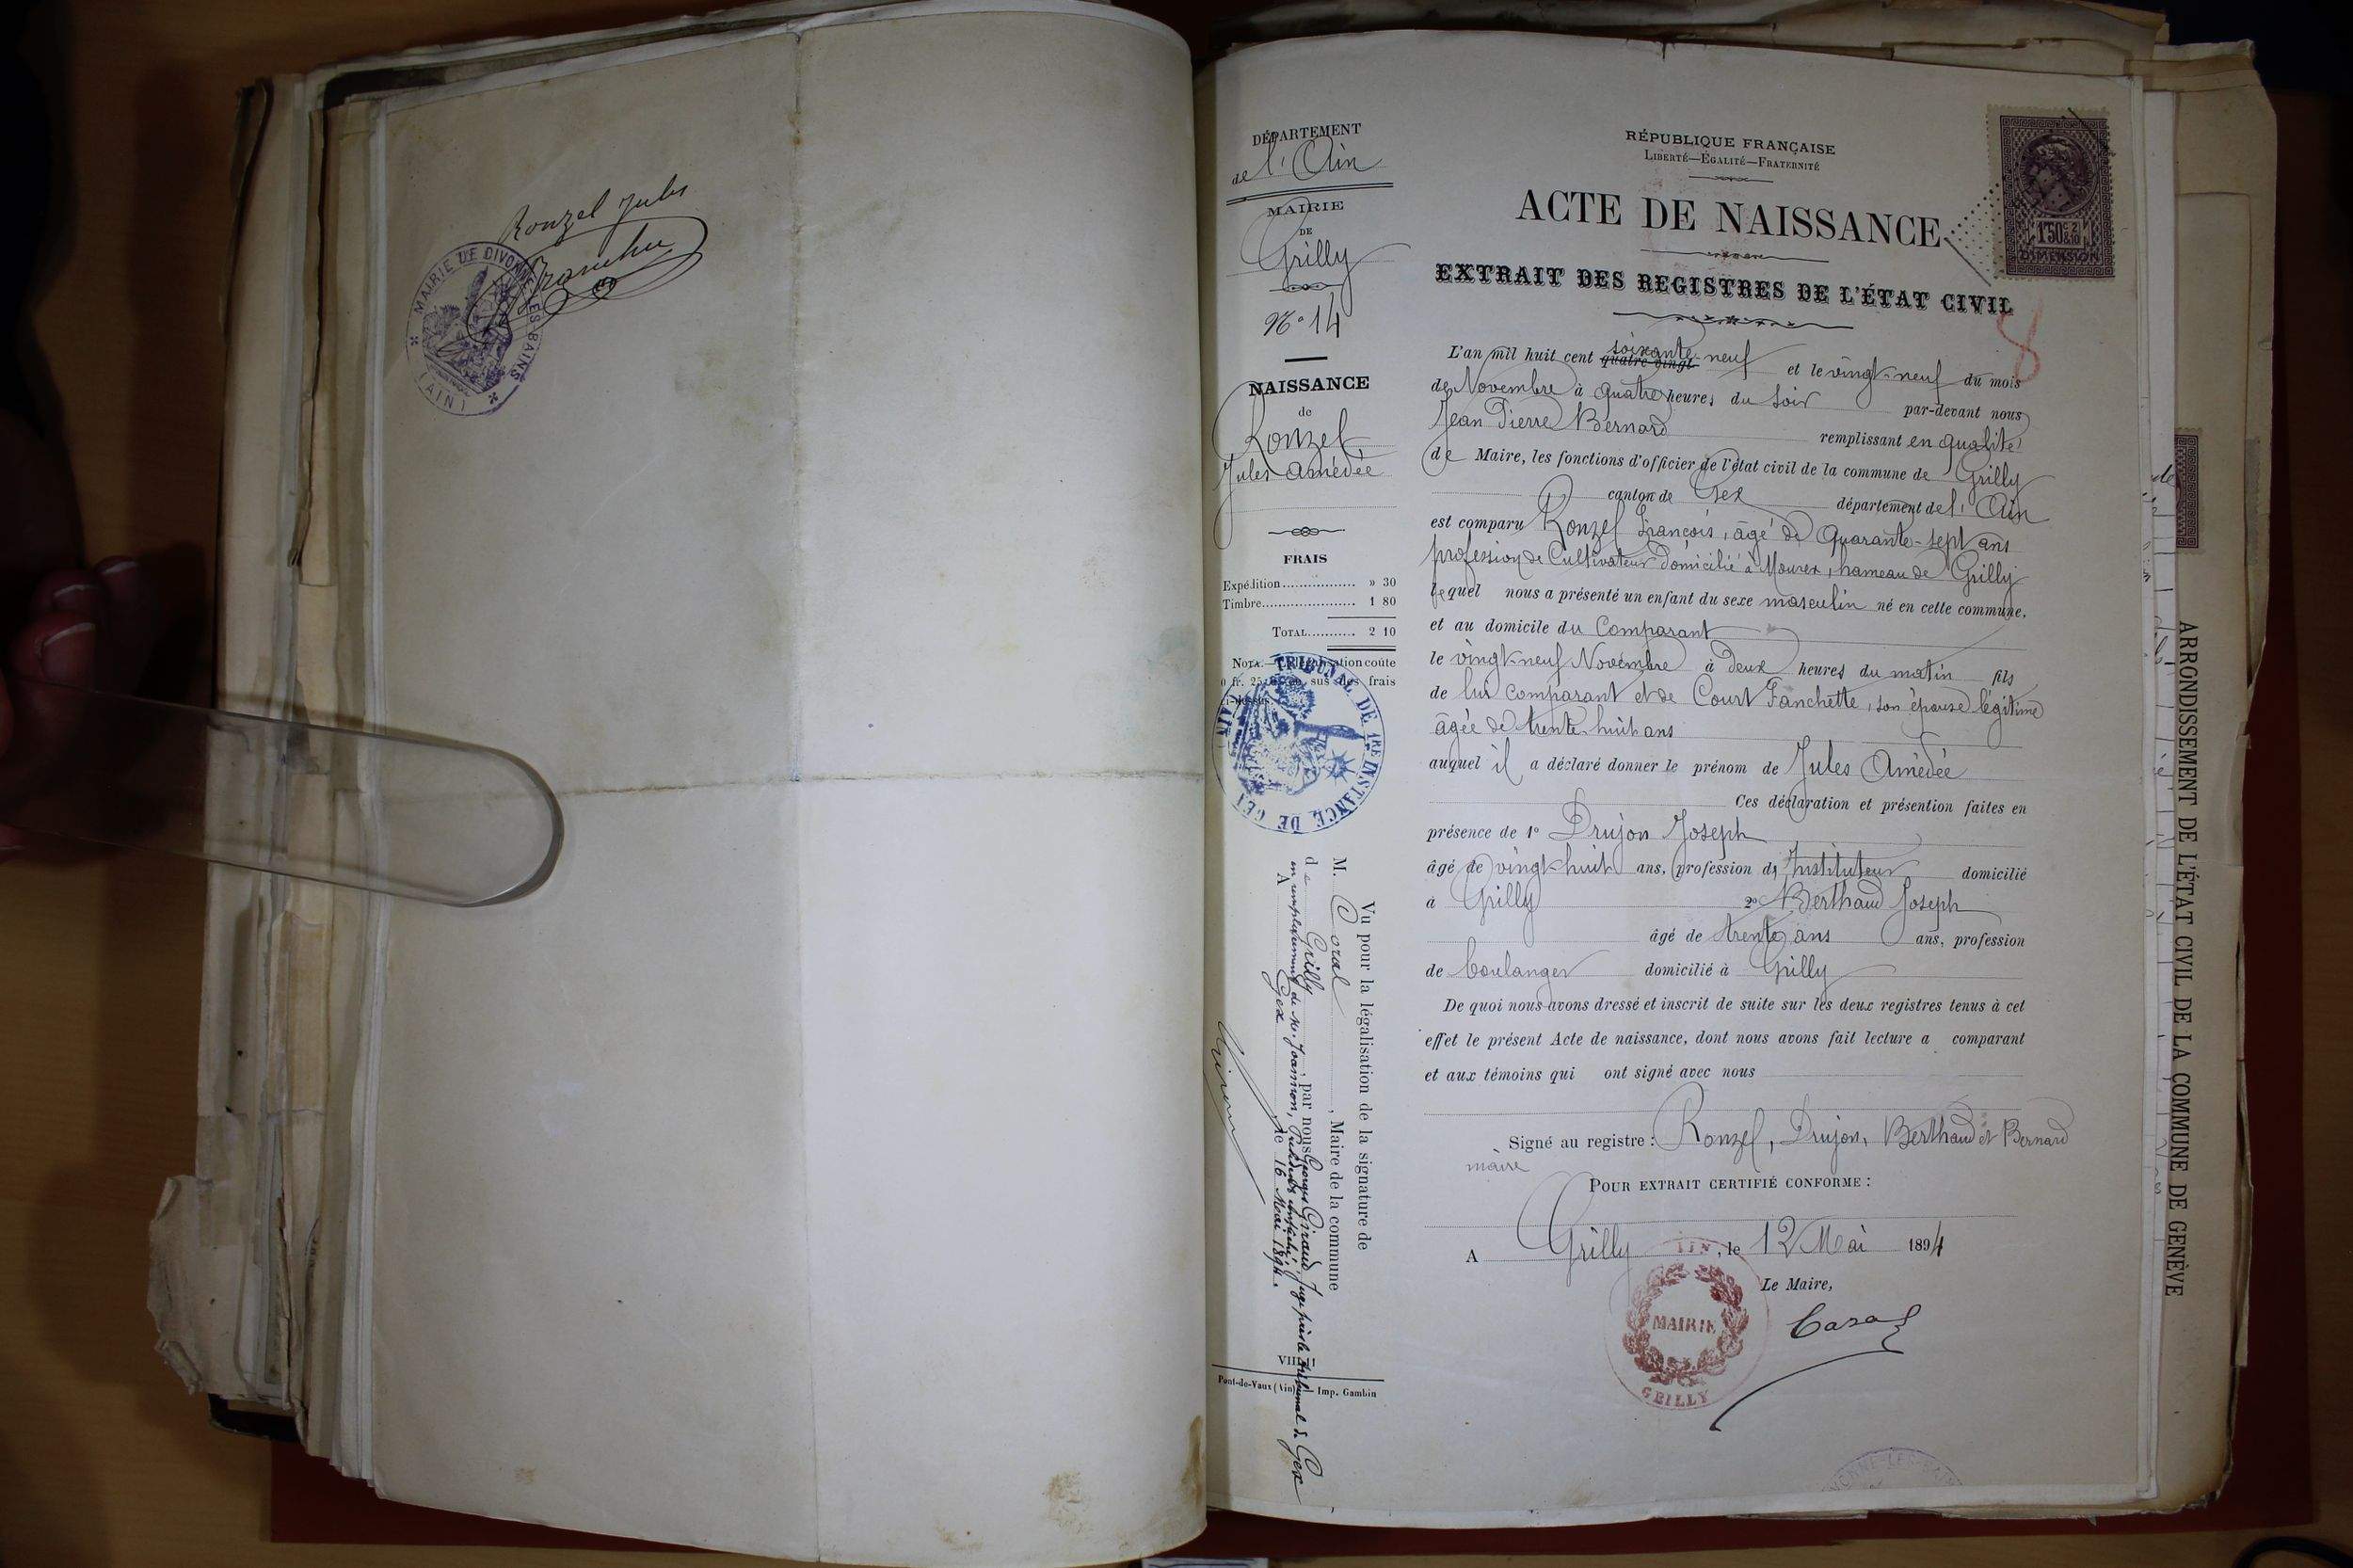 Ronzel Jules
MAIRIE DE DIVONNE-LES-BAINS
(AIN)
DÉPARTEMENT
de l'Ain
MAIRIE
DE
Grilly
N° 14
NAISSANCE
de
Ronzel
Jules Amédée
FRAIS
Expédition................ » 30
Timbre..................... 1 80
TOTAL.......... 2 10
NOTA.
TRIBUNAL DE 1RE INSTANCE DE GEX
Vu pour la légalisation de la signature de
M. Coral, Maire de la commune
de Grilly par nous Georges Giraud, Juge près le tribunal de Gex
en remplacement de M. Joannon, Président empêché
A Gex le 16 Mai 1894.
VIII
Pont-de-Vaux (Ain) Imp. Gambin
RÉPUBLIQUE FRANÇAISE
LIBERTÉ—ÉGALITÉ—FRATERNITÉ
ACTE DE NAISSANCE
1F50c 2/10
DIMENSION
EXTRAIT DES REGISTRES DE L'ÉTAT CIVIL
8
soixante
L'an mil huit cent quatre-vingt-neuf et le vingt-neuf du mois
de Novembre à quatre heures du soir par-devant nous
Jean Pierre Bernard remplissant en qualité
de Maire, les fonctions d'officier de l'état civil de la commune de Grilly
canton de Gex département de l'Ain
est comparu Ronzel François, âgé de Quarante-sept ans
profession de Cultivateur domicilié à Mourex, hameau de Grilly
lequel nous a présenté un enfant du sexe masculin né en cette commune,
et au domicile du Comparant
le vingt-neuf Novembre à Deux heures du matin fils
de lui comparant et de Court Fanchette, son épouse légitime
âgée de trente-huit ans
auquel il a déclaré donner le prénom de Jules Amédée
Ces déclaration et présention faites en
présence de 1° Drujon Joseph
âgé de vingt-huit ans, profession d'Instituteur domicilié
à Grilly 2° Berthaud Joseph
âgé de trente ans ans, profession
de boulanger domicilié à Grilly
De quoi nous avons dressé et inscrit de suite sur les deux registres tenus à cet
effet le présent Acte de naissance, dont nous avons fait lecture a comparant
et aux témoins qui ont signé avec nous
Signé au registre : Ronzel, Drujon, Berthaud et Bernard
maire
POUR EXTRAIT CERTIFIÉ CONFORME :
A Grilly, le 12 Mai 1894
Le Maire,
MAIRIE
GRILLY
ARRONDISSEMENT DE L'ÉTAT CIVIL DE LA COMMUNE DE GENÈVE